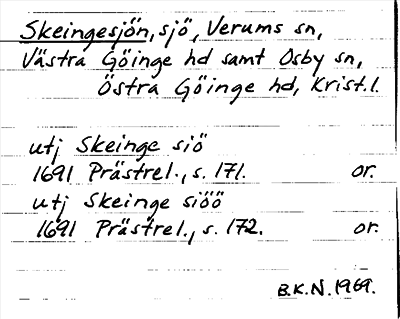 Skeingesjön, sjö, Verums sn,
Västra Göinge hd samt Osby sn,
Östra Göinge hd, Krist.l.
utj Skeinge siö
1691 Prästrel., s. 171. or.
utj Skeinge siöö
1691 Prästrel., s. 172. or.
B.K.N. 1969.